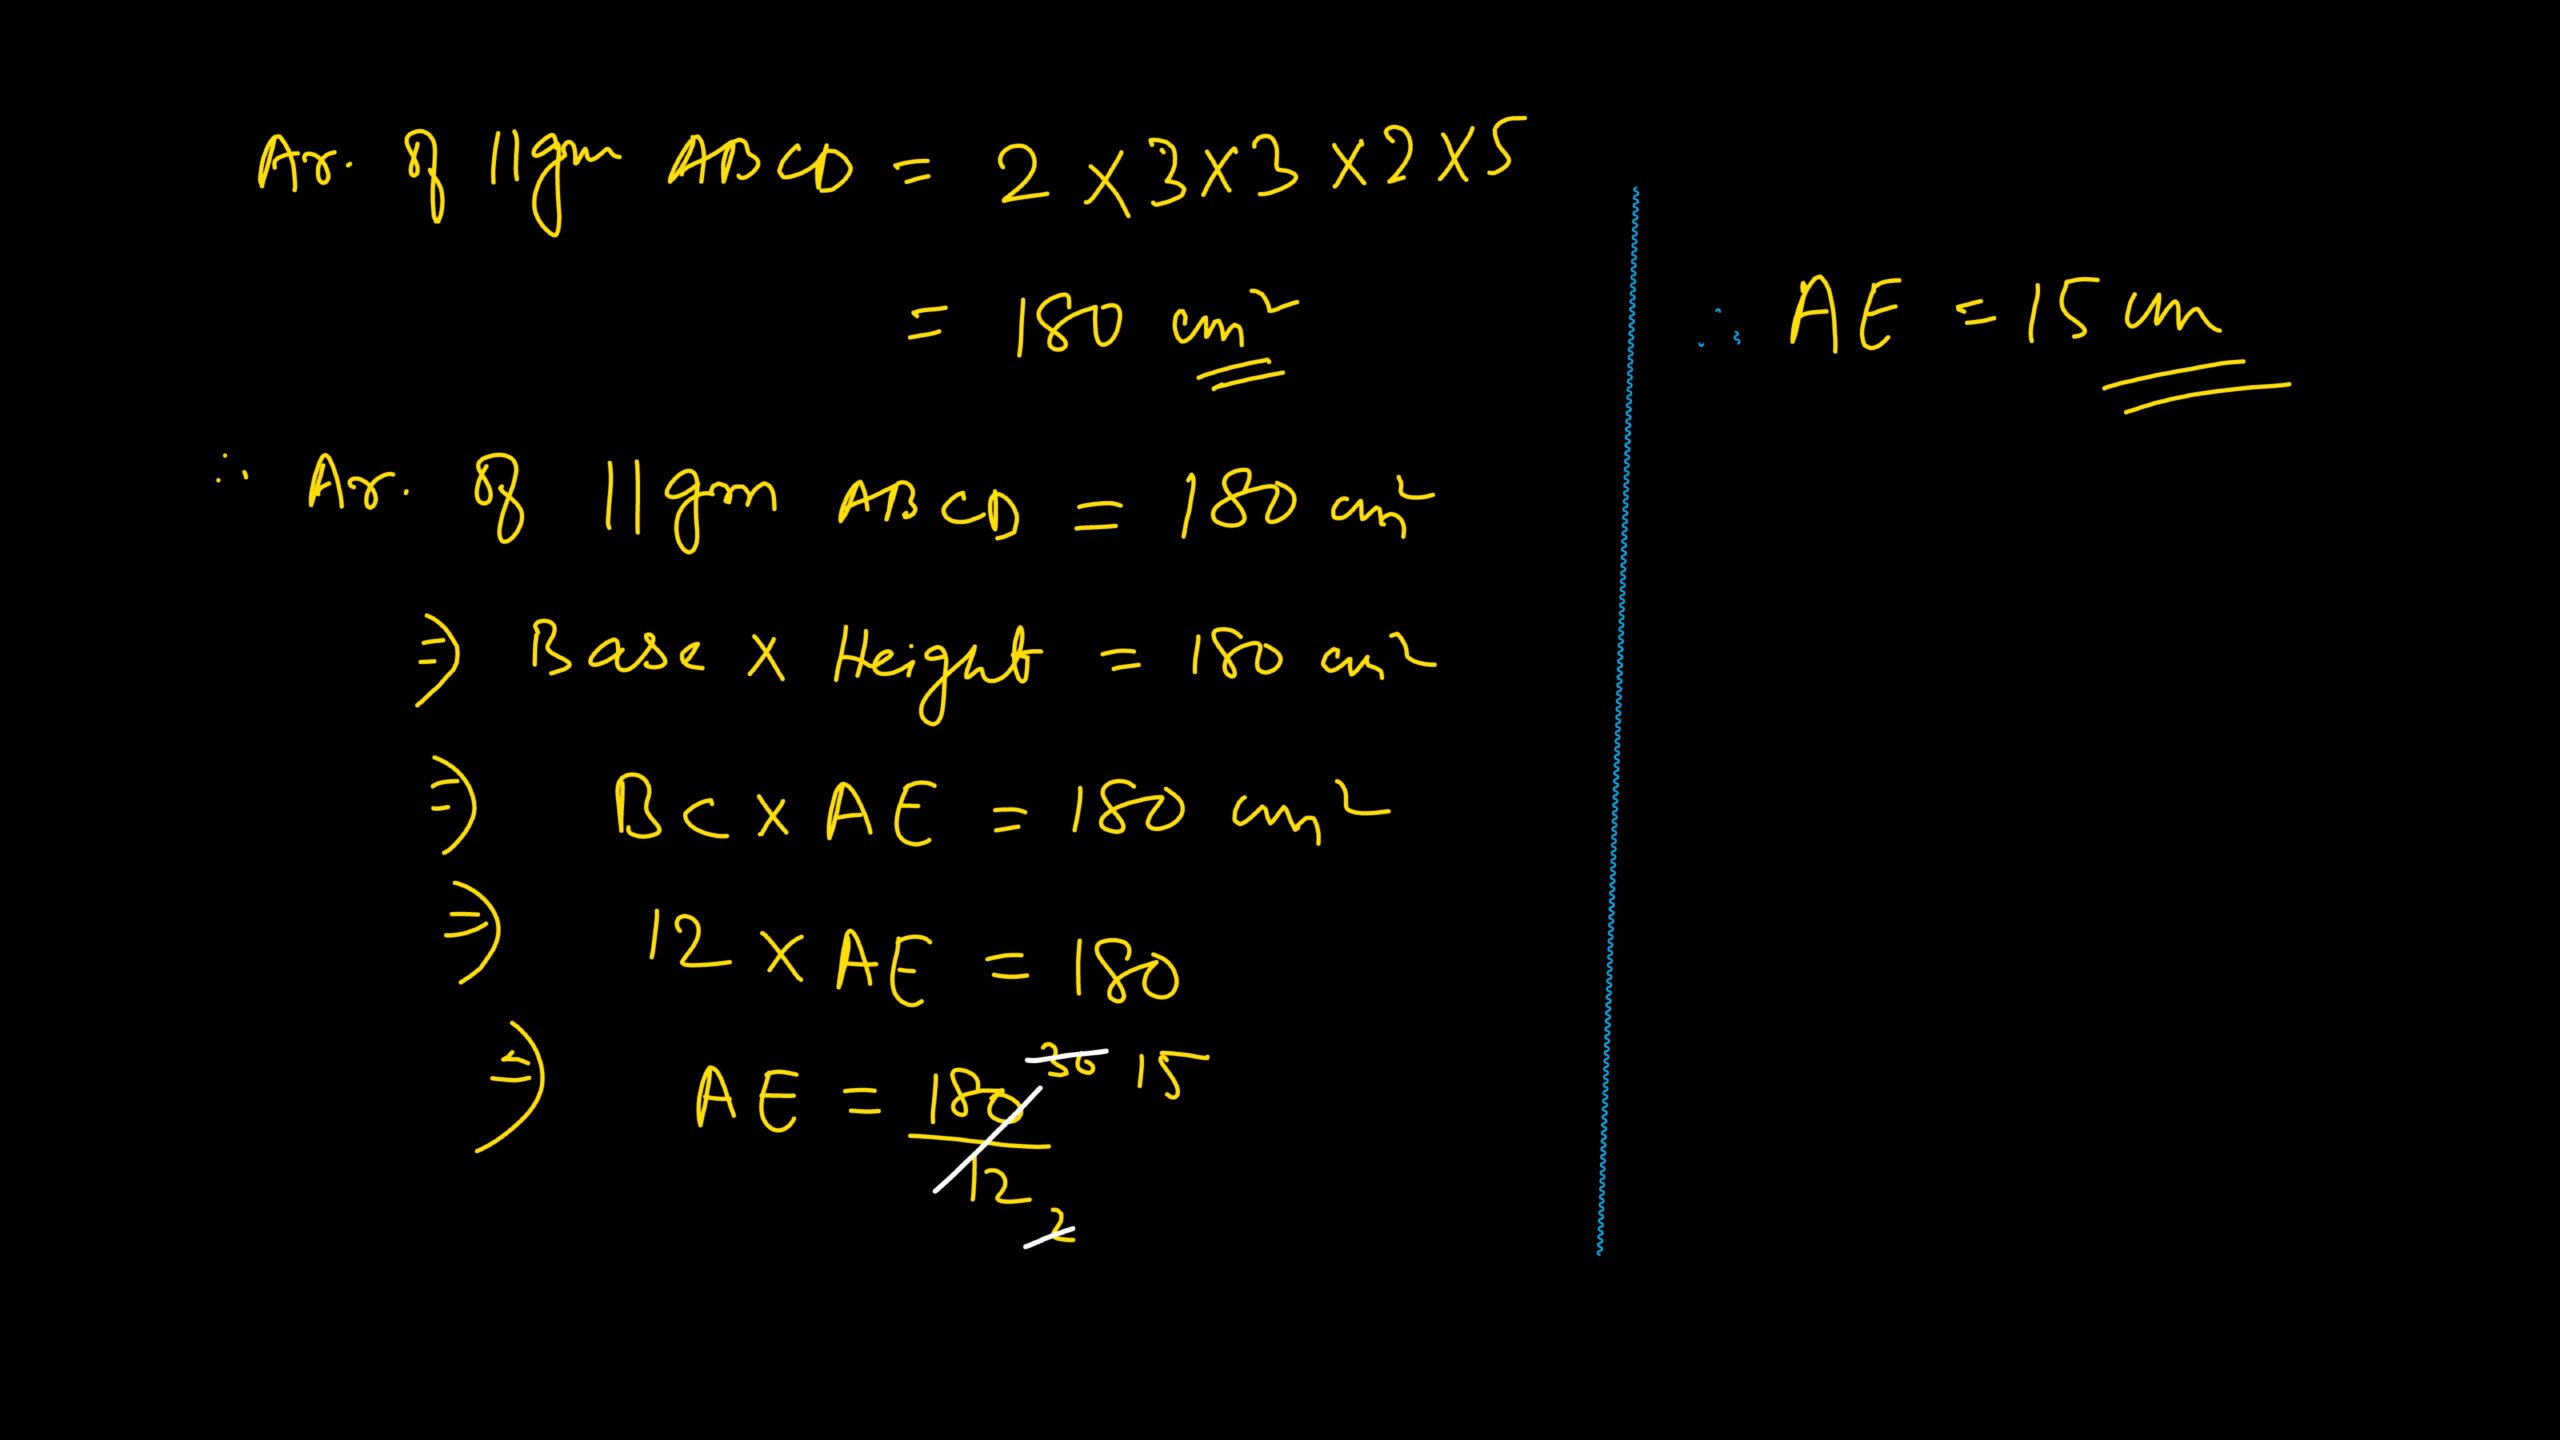 Ar. of ||gm ABCD = 2 × 3 × 3 × 2 × 5
= 180 cm²
∴ Ar. of ||gm ABCD = 180 cm²
⇒ Base × Height = 180 cm²
⇒ BC × AE = 180 cm²
⇒ 12 × AE = 180
⇒ AE = 180/12 30 15 2
∴ AE = 15 cm